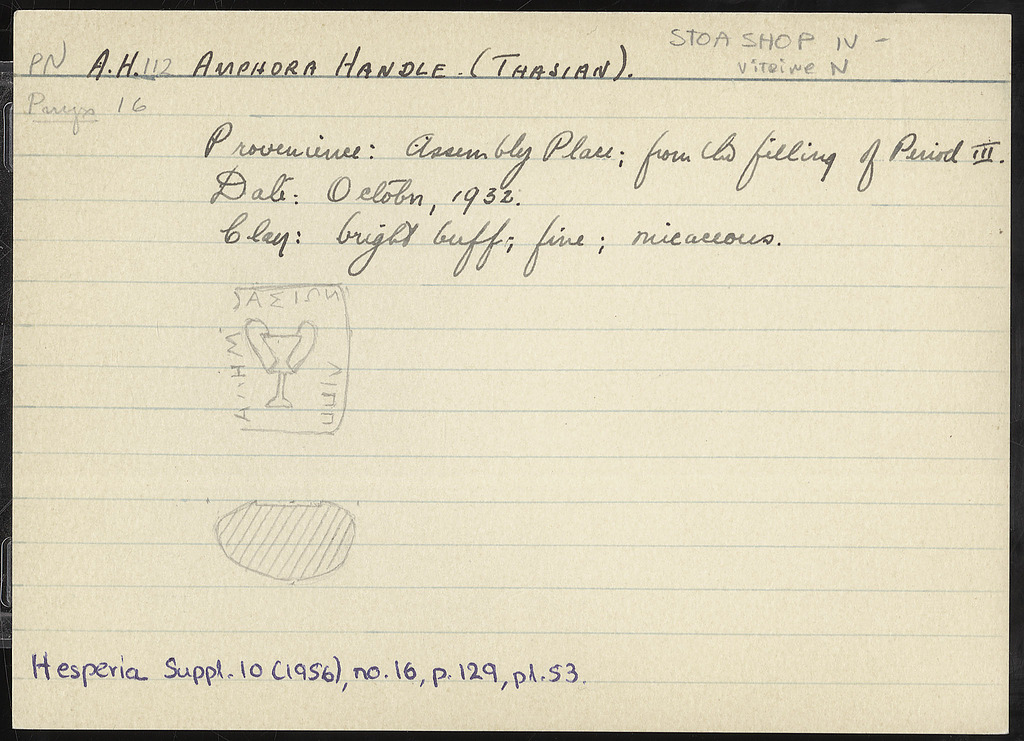 STOA SHOP IV -
PN A.H.112 AMPHORA HANDLE. (THASIAN).
Vitrine N
Pnyx 16
Provenience: Assembly Place; from the filling of Period III.
Date: October, 1932.
Clay: bright buff; fine; micaceous.
ΑΣΙΩΝ
Hesperia Suppl. 10 (1956), no. 16, p. 129, pl. 53.